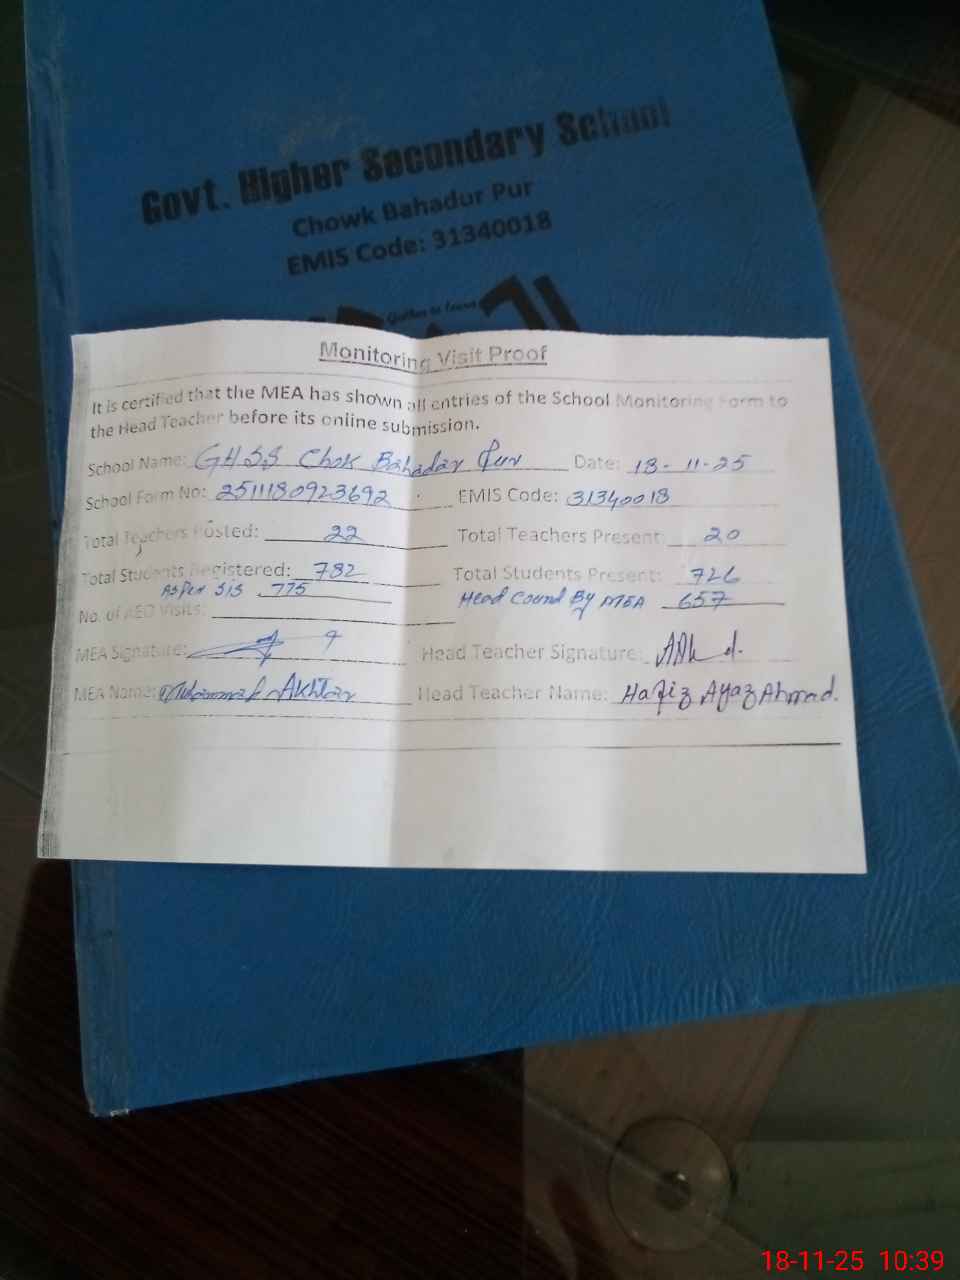 Govt. Higher Secondary School
Chowk Bahadur Pur
EMIS Code: 31340018
Monitoring Visit Proof
It is certified that the MEA has shown all entries of the School Monitoring Form to
the Head Teacher before its online submission.
School Name: GHSS Chok Bahadar Pur Date: 18-11-25
School Form No: 2511180923692 EMIS Code: 31340018
Total Teachers Posted: 22 Total Teachers Present: 20
Total Students Registered: 782 Total Students Present: 726
As Per SIS 775 Head Cound By MEA 657
No. of AEO Visits:
MEA Signature: Head Teacher Signature:
MEA Name: Muhammad Akhtar Head Teacher Name: Hafiz Ayaz Ahmad.
18-11-25 10:39